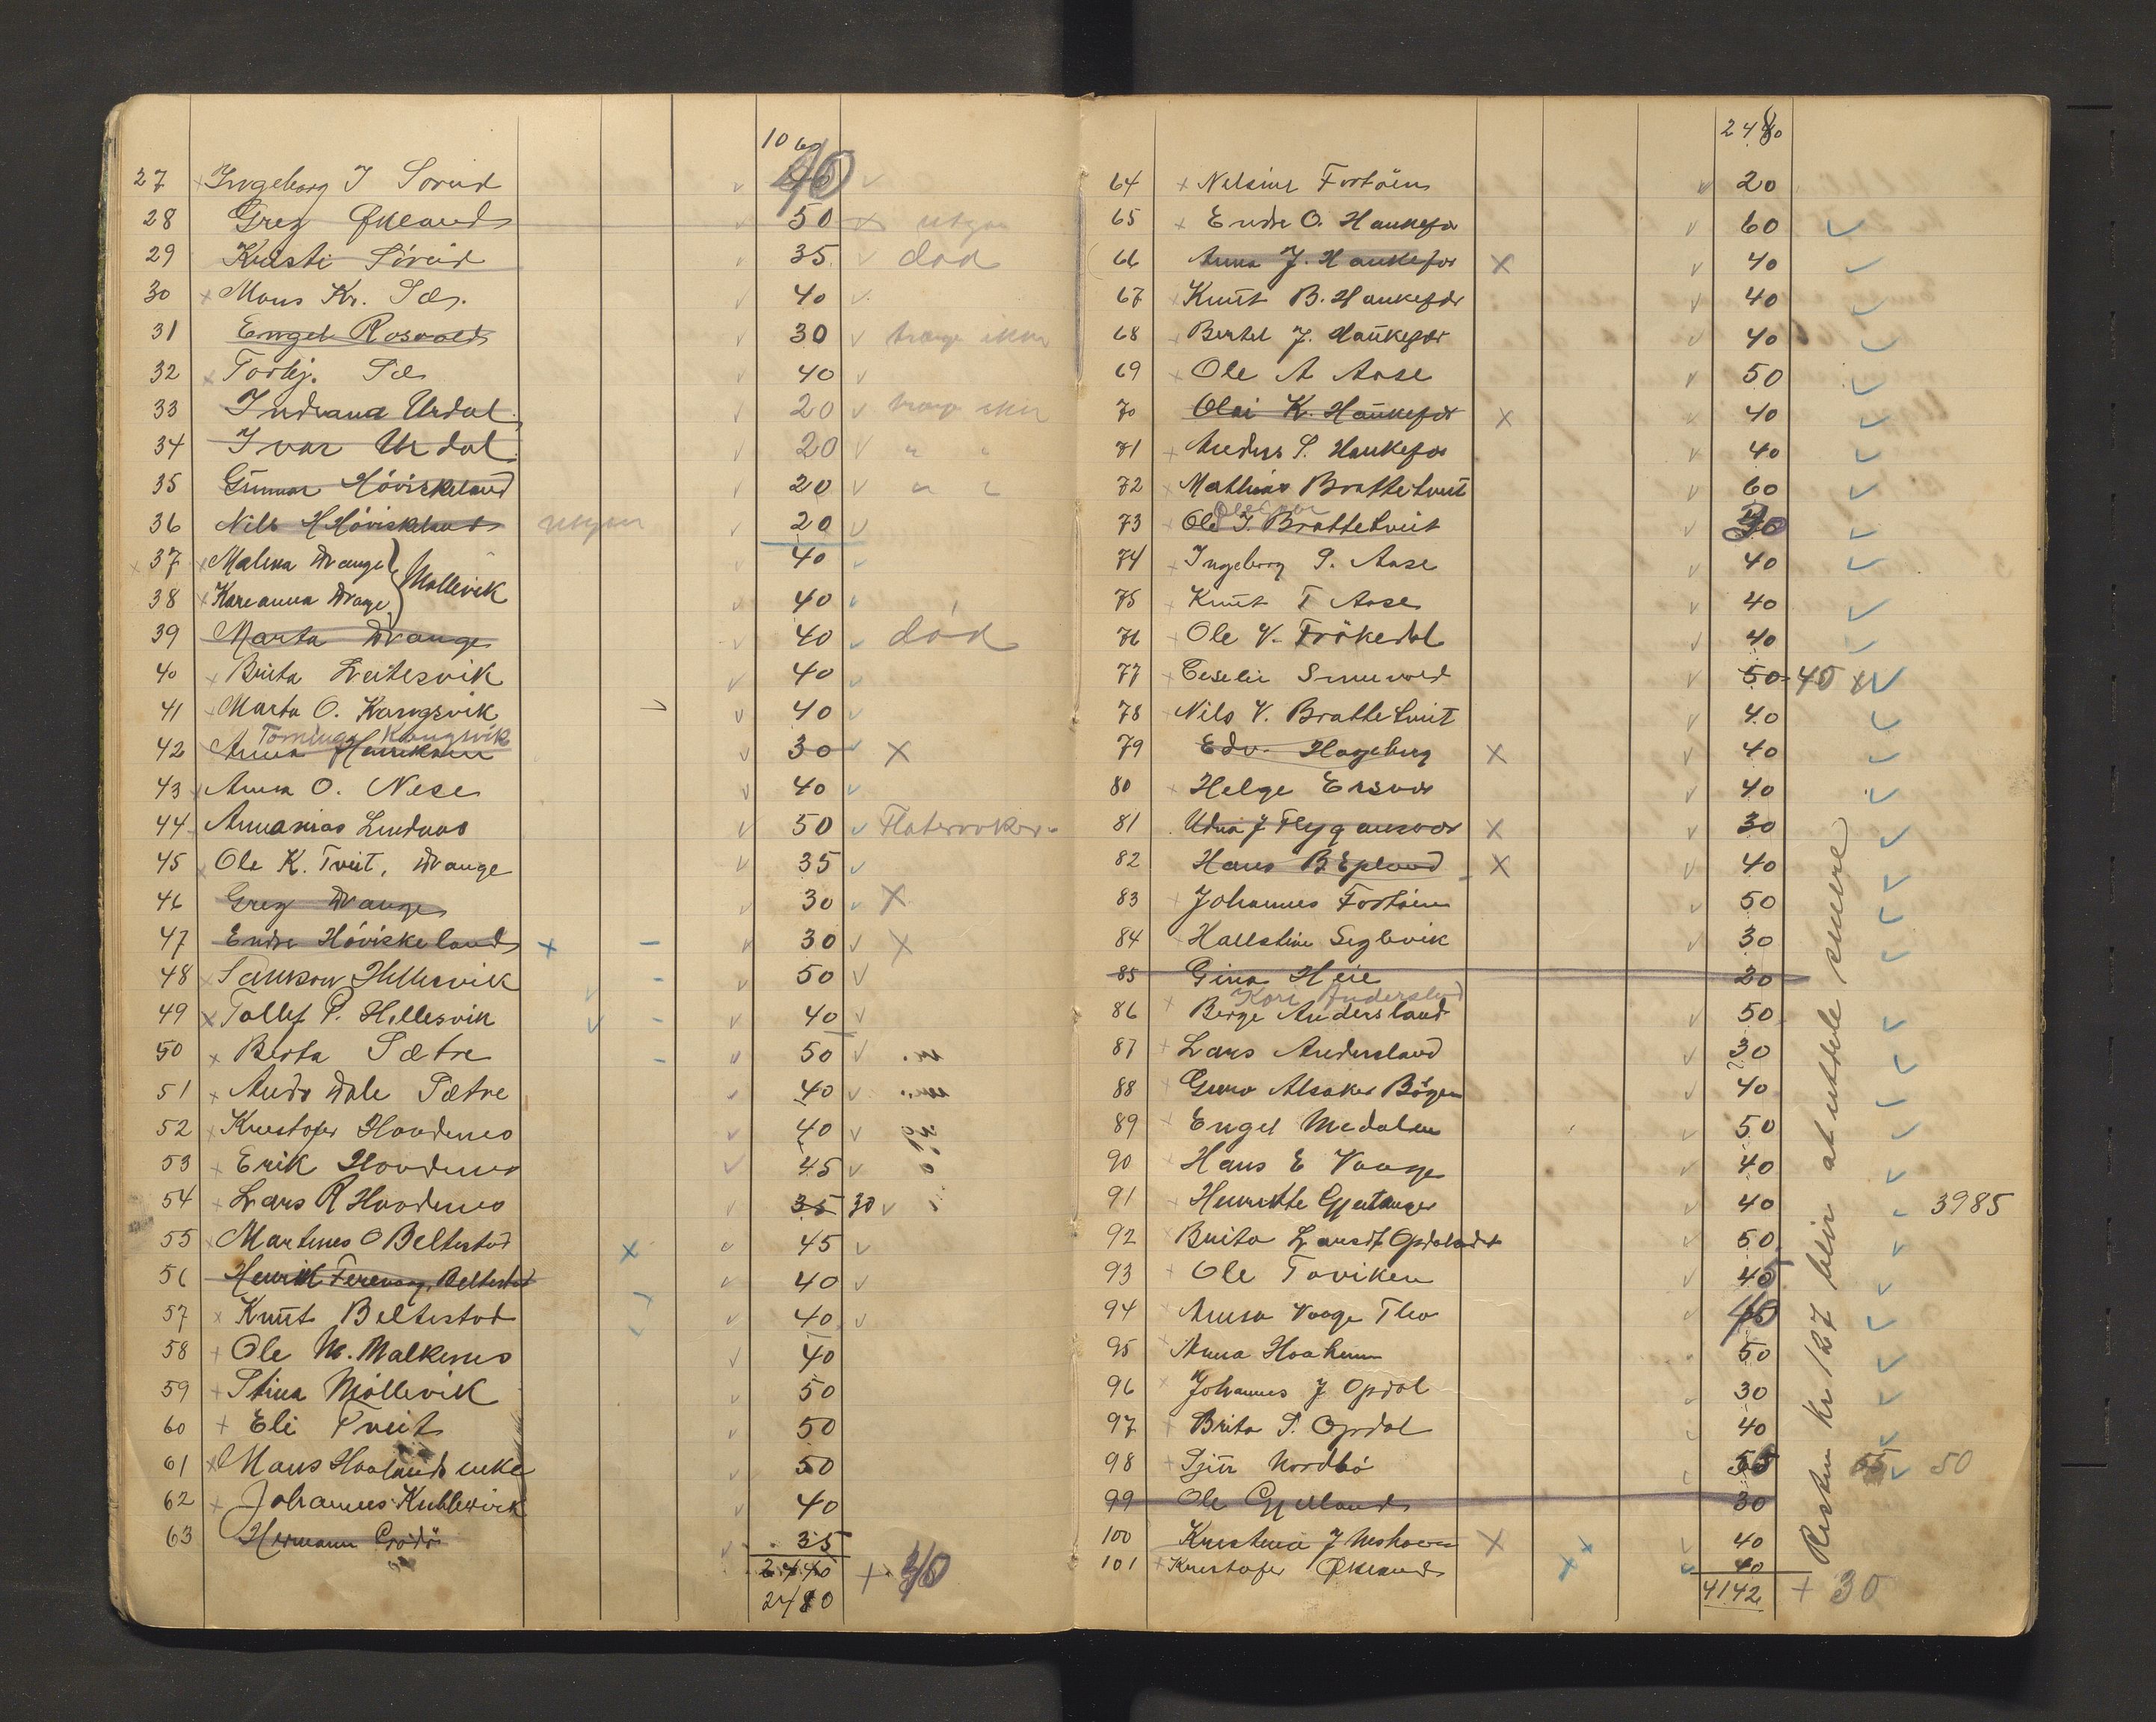 1060
27 Ingeborg I Søreid 40
28 Greg Økland 50 x utgaar
29 Kristi Söreid 35 död
30 Mons Kr. Sæ. 40
31 Engel Rosvold 30 trænge ikke
32 Torbj. Sæ 40
33 Indiana Urdal 20 trænge ikke
34 Ivar Urdal 20 " "
35 Gunnar Höviskeland 20 " "
36 Nils H Höviskeland utgaar 20
37 Malena Drange } Mollevik 40
38 Kareanna Drange 40
39 Marta Drange 40 död
40 Brita Leitesvik 40
41 Marta O. Kongsvik 40
Tomine Kongsvik
42 Anna Henriksen 30 x
43 Anna O. Nese 40
44 Annanias Lindaas 50 Flateraaker
45 Ole K. Tveit, Drange 35
46 Greg Drange 30 x
47 Endre Höviskeland x - 30 x
48 Samson Hillesvik - 50
49 Tollef P. Hillesvik - 40
50 Berta Sætre - 50
51 Anders Dale Sætre 40
52 Kristofer Hovdenes 40
53 Erik Hovdenes 45
54 Lars R Hovdenes 35 30
55 Martines O Beltestad x 45
56 Henrik Ferevaag, Beltestad 40
57 Knut Beltestad 40
58 Ole M. Malkenes 40
59 Stina Möllevik 50
60 Eli Tveit 50
61 Mons Haalands enke 50
62 Johannes Kubbervik 40
63 Hermann Grödö 35
2440 + 40
2480
2480
64 Nelsine Fortöien 20
65 Endre O. Haukefær 60
66 Anna J. Haukefær x 40
67 Knut B. Haukefær 40
68 Bertel J. Haukefær 40
69 Ole A Aase 50
70 Olai K. Haukefær x 40
71 Anders S. Haukefær 40
72 Mathias Brattetveit 60
73 Ole I. Brattetveit 30
74 Ingeborg P. Aase 40
75 Knut T Aase 40
76 Ole V. Frökedal 40
77 Ceselie Smuevold 50 40 x
78 Nils V. Brattetveit 40
79 Edv. Hageberg x 40
80 Helge Ersvær 40
81 Udna J Flygansvær x 30
82 Hans B Epland x 40
83 Johannes Fortöien 50
84 Hallstein Seglevik 30
85 Gina Heie 20
Kari Andersland
86 Berge Andersland 50
87 Lars Andersland 30
88 Guro Alsaker Bögen 40
89 Engel Medalen 50
90 Hans E Vaage 40
91 Henrikke Gjertanger 40 3985
92 Brita Larsdt Opdalsdt 50
93 Ole Toviken 40
94 Anna Vaage Theo 40
95 Anna Haaheim 50
96 Johannes J Opdal 30
97 Brita S. Opdal 40
98 Sjur Nordbö 55 50
99 Ole Gjelland 30
100 Kristina J Neshavn x 40
101 Kristofer Økland 40
4142 + 30
Resten kr 127 blir at utdele senere